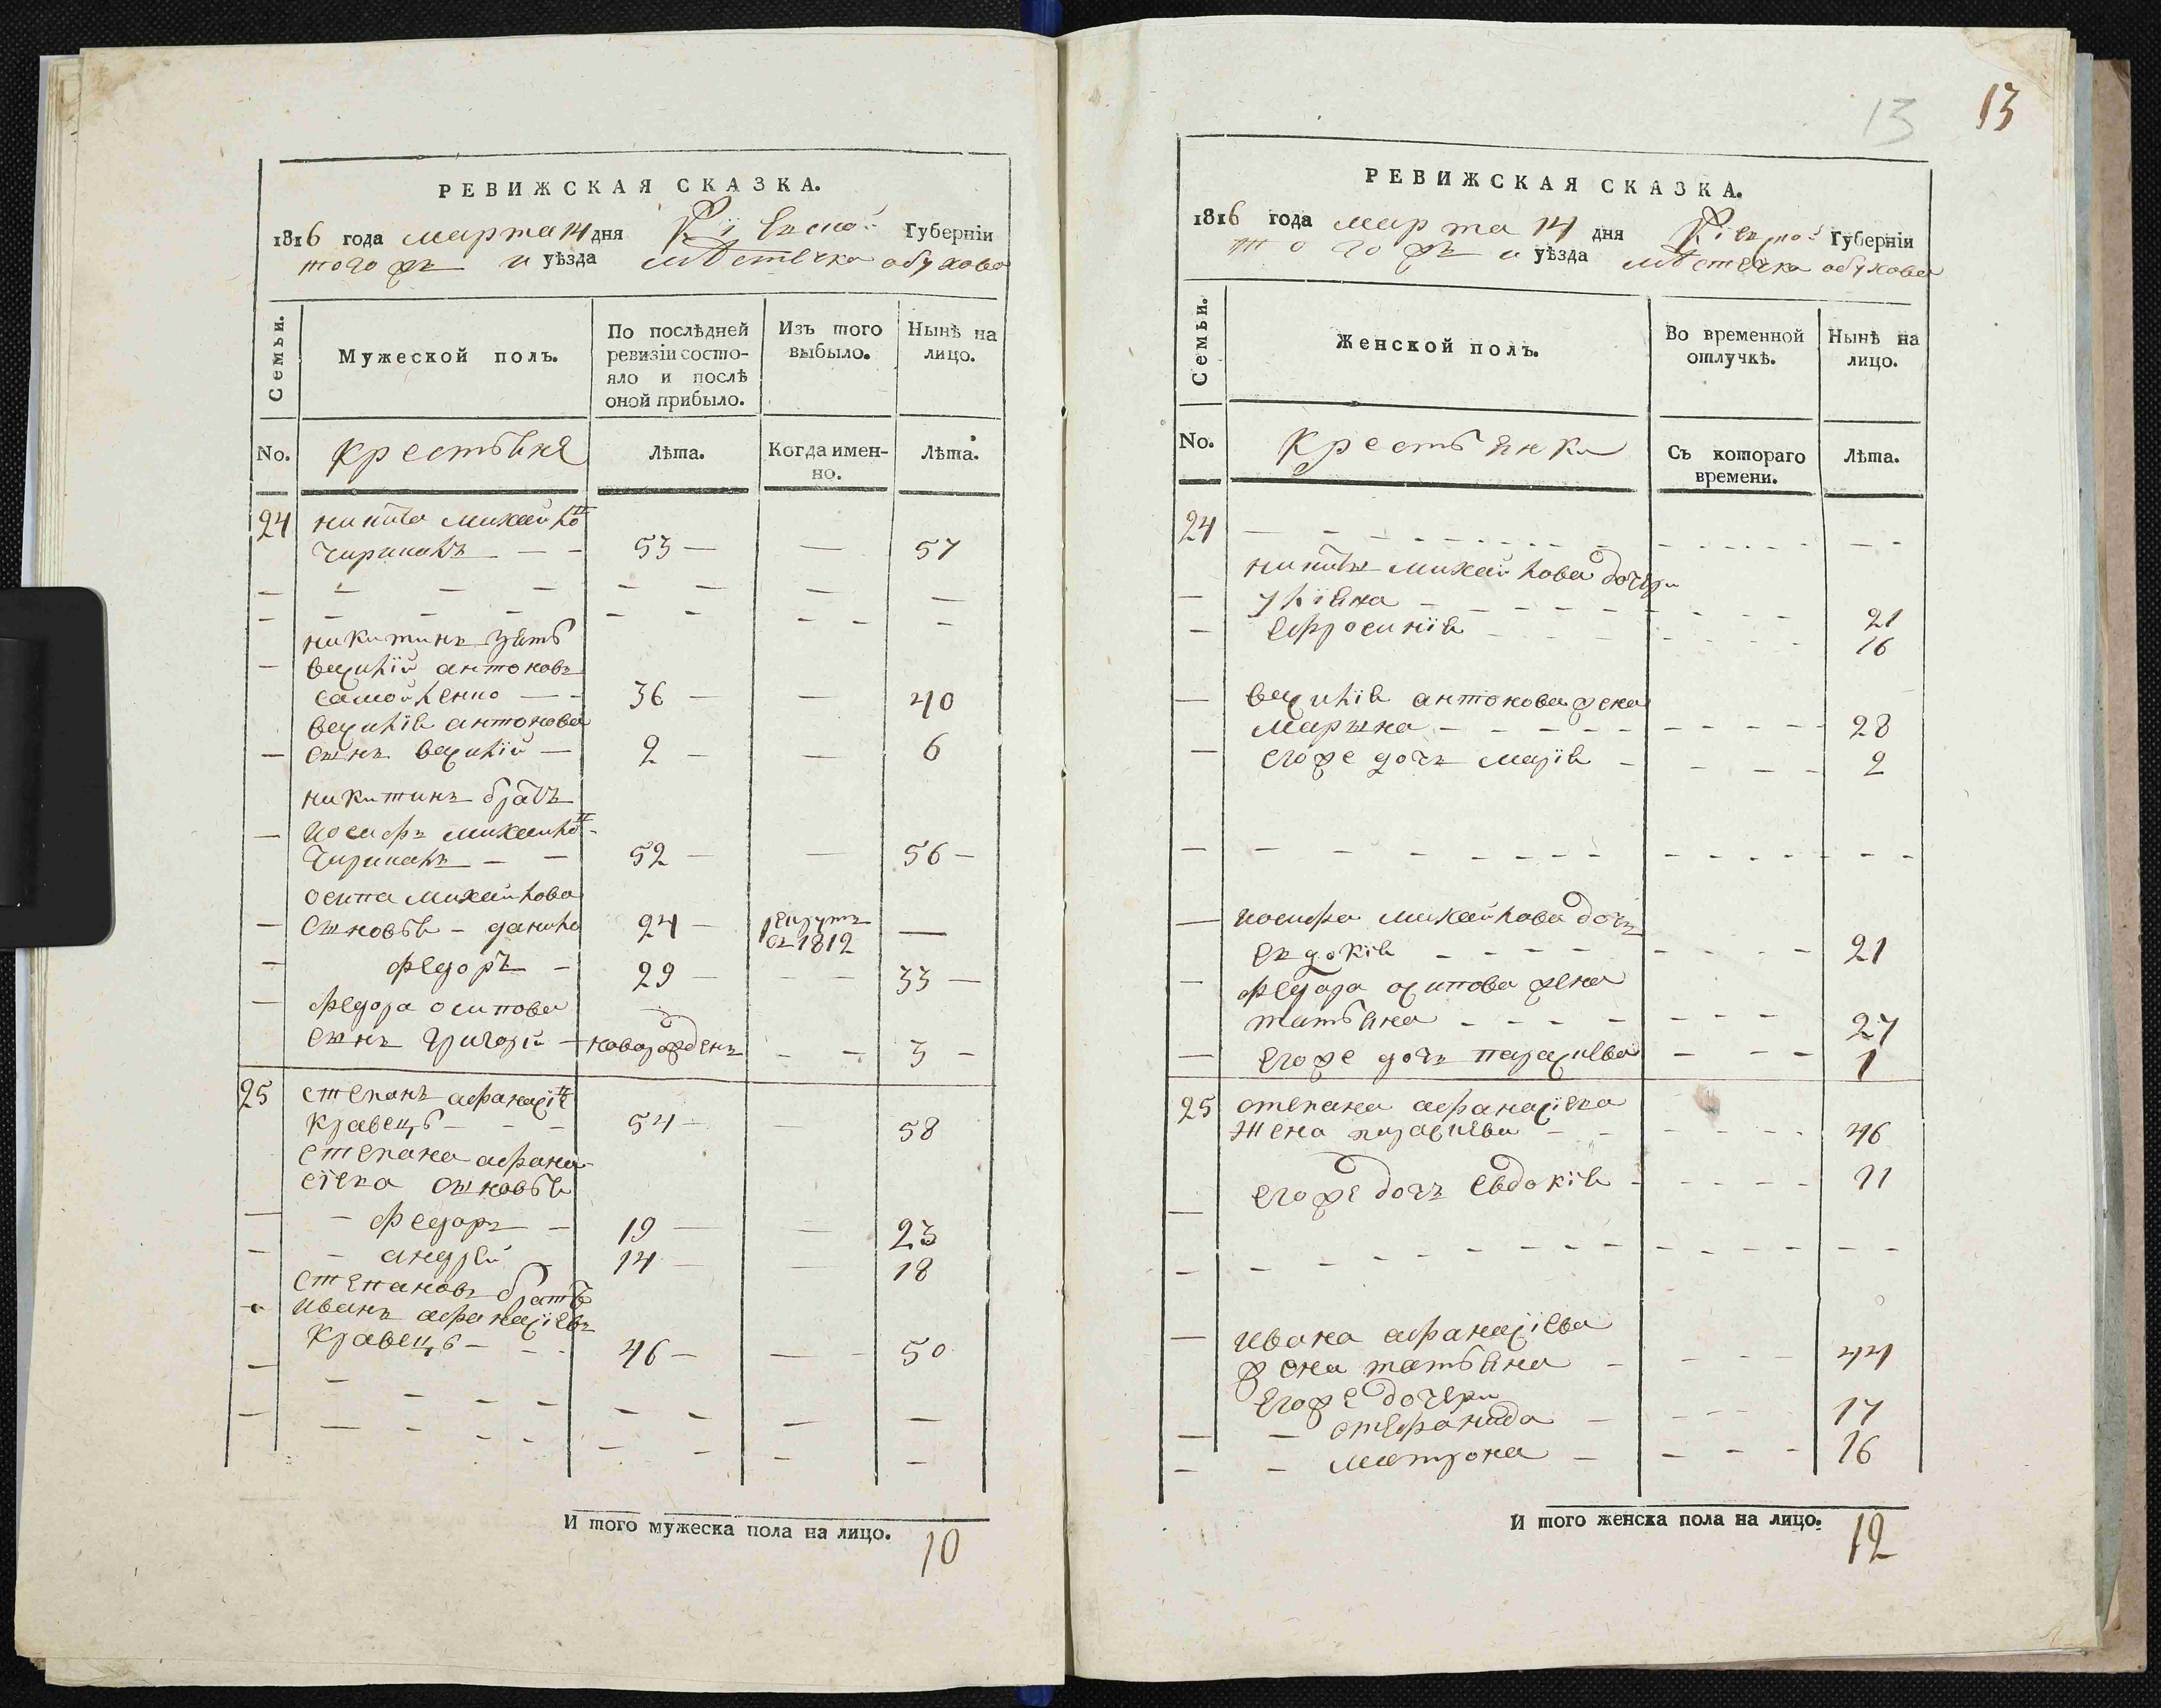 РЕВИЖСКАЯ СКАЗКА.
1816 года марта 14 дня Кіевской Губерніи
того жъ и уѣзда мѣстечка обухова
Семьи.
Мужеской полъ.
По послѣдней ревизіи состо-
яло и послѣ
оной прибыло.
Изъ того
выбыло.
Нынѣ на
лицо.
No.
крестьяня
Лѣта.
Когда имен-
но.
Лѣта.
24 никита михайло
53 — — 57
никитинъ зять
василій антоновъ
самойленко — 36 — — 40
василія антонова
сынъ василій — 2 — — 6
никитинъ братъ
иосифъ михайло
52 — — 56 —
осипа михайлова
сыновья - данило 24 — рекрутъ —
въ 1812
федоръ — 29 — — 33 —
федора осипова
сынъ григорій — новорожденъ — — 3 —
25 степанъ афанасіе
кравецъ — 54 — — 58
степана афана-
сіева сыновья
— федоръ — 19 — — 23
— андрей 14 — — 18
степановъ братъ
иванъ афанасіевъ
кравець — 46 — — 50
И того мужеска пола на лицо. 10
13 13
РЕВИЖСКАЯ СКАЗКА.
1816 года марта 14 дня Кіевской Губерніи
того жъ и уѣзда мѣстечка обухова
Семьи.
Женской полъ.
Во временной
отлучкѣ.
Нынѣ на
лицо.
No.
Крестьянки
Съ котораго
времени.
Лѣта.
24
никиты михайлова дочери
уліяна 21
ефросинія 16
василія антонова жена
марына 28
егоже дочъ марія 2
иосифа михайлова дочъ
евдокія 21
федора осипова жена
татьяна 27
егоже дочъ параскева 1
25 степана афанасіева
жена параскева 46
егоже дочъ евдокія 11
ивана афанасіева
жена татьяна 44
егоже дочери
— стефанида 17
— матрона 16
И того женска пола на лицо. 12